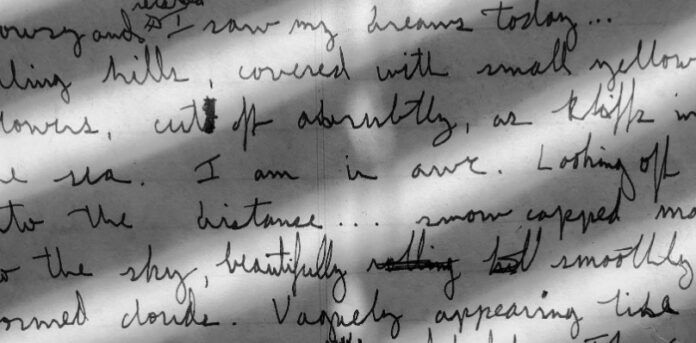 owsy and I saw my dreams today...
ling hills, covered with small yellow
lowers, cut off abrubtly, as kliffs in
e sea. I am in awe. Looking off
to the distance... snow capped mo
o the sky, beautifully smoothly
ormed clouds. Vaguely appearing like